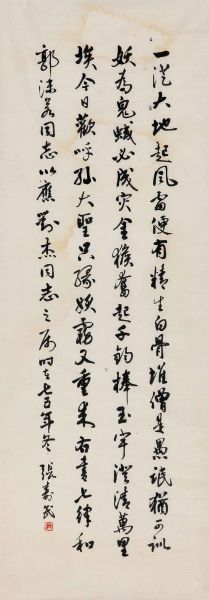 一從大地起風雷便有精生白骨堆僧是愚氓猶可訓
妖為鬼蜮必成災金猴奮起千鈞棒玉宇澄清萬里
埃今日歡呼孫大聖只緣妖霧又重來右書七律和
郭沫若同志以應劉杰同志之屬時在七五年冬 張壽民